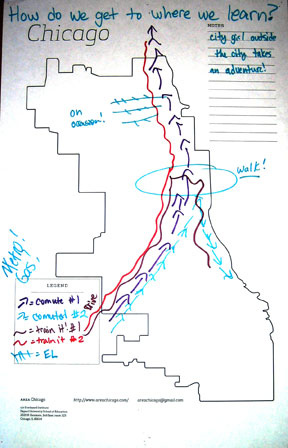 How do we get to where we learn?
Chicago
NOTES
city girl outside
the city takes
an adventure!
on
occasion!
walk!
Metra!
Gas!
LEGEND
= comute #1
= comute #2
= train it! #1
= train it #2
= EL
Drive
AREA Chicago
http://www.areachicago.com/
areachicago@gmail.com